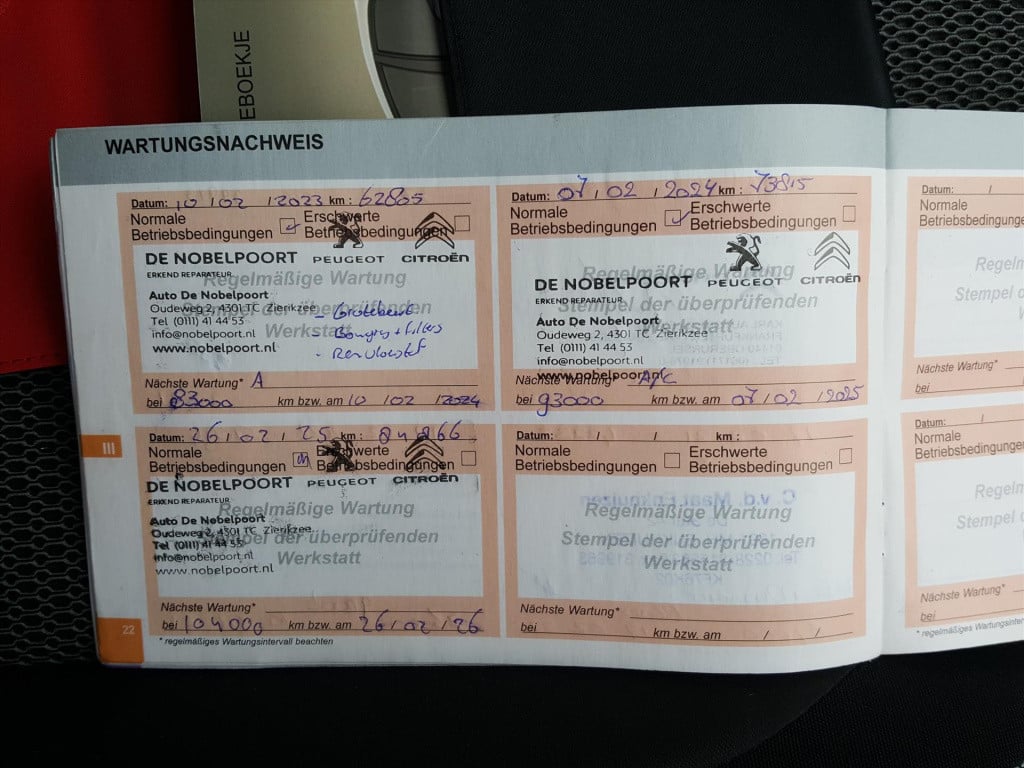 EBOEKJE
WARTUNGSNACHWEIS
Datum: 10 / 02 / 2023 km: 62865
Normale Betriebsbedingungen
Erschwerte Betriebsbedingungen
DE NOBELPOORT PEUGEOT CITROËN
ERKEND REPARATEUR
Regelmäßige Wartung
Stempel der überprüfenden
Werkstatt
Auto De Nobelpoort
Oudeweg 2, 4301 TC Zierikzee
Tel (0111) 41 44 53
info@nobelpoort.nl
www.nobelpoort.nl
- Grotebeurt
- Bougies + filters
- Remvloeistof
Nächste Wartung* A
bei 83000 km bzw. am 10 / 02 / 2024
Datum: 07 / 02 / 2024 km: 73815
Normale Betriebsbedingungen
Erschwerte Betriebsbedingungen
DE NOBELPOORT PEUGEOT CITROËN
ERKEND REPARATEUR
Regelmäßige Wartung
Stempel der überprüfenden
Werkstatt
Auto De Nobelpoort
Oudeweg 2, 4301 TC Zierikzee
Tel (0111) 41 44 53
info@nobelpoort.nl
www.nobelpoort.nl
Nächste Wartung* A/C
bei 93000 km bzw. am 07 / 02 / 2025
III
Datum: 26 / 02 / 25 km:
Normale Betriebsbedingungen
Erschwerte Betriebsbedingungen
DE NOBELPOORT PEUGEOT CITROËN
ERKEND REPARATEUR
Regelmäßige Wartung
Stempel der überprüfenden
Werkstatt
Auto De Nobelpoort
Oudeweg 2, 4301 TC Zierikzee
Tel (0111) 41 44 53
info@nobelpoort.nl
www.nobelpoort.nl
Nächste Wartung*
bei 104000 km bzw. am 26 / 02 / 26
Datum: / / km:
Normale Betriebsbedingungen
Erschwerte Betriebsbedingungen
Regelmäßige Wartung
Stempel der überprüfenden
Werkstatt
Nächste Wartung*
bei km bzw. am / /
22
* regelmäßiges Wartungsintervall beachten
Datum: /
Normale
Betriebsbedingungen
Regelm
Stempel d
Nächste Wartung*
bei
Datum: /
Normale
Betriebsbedingungen
Regelm
Stempel d
Nächste Wartung*
bei
* regelmäßiges Wartungsinterv